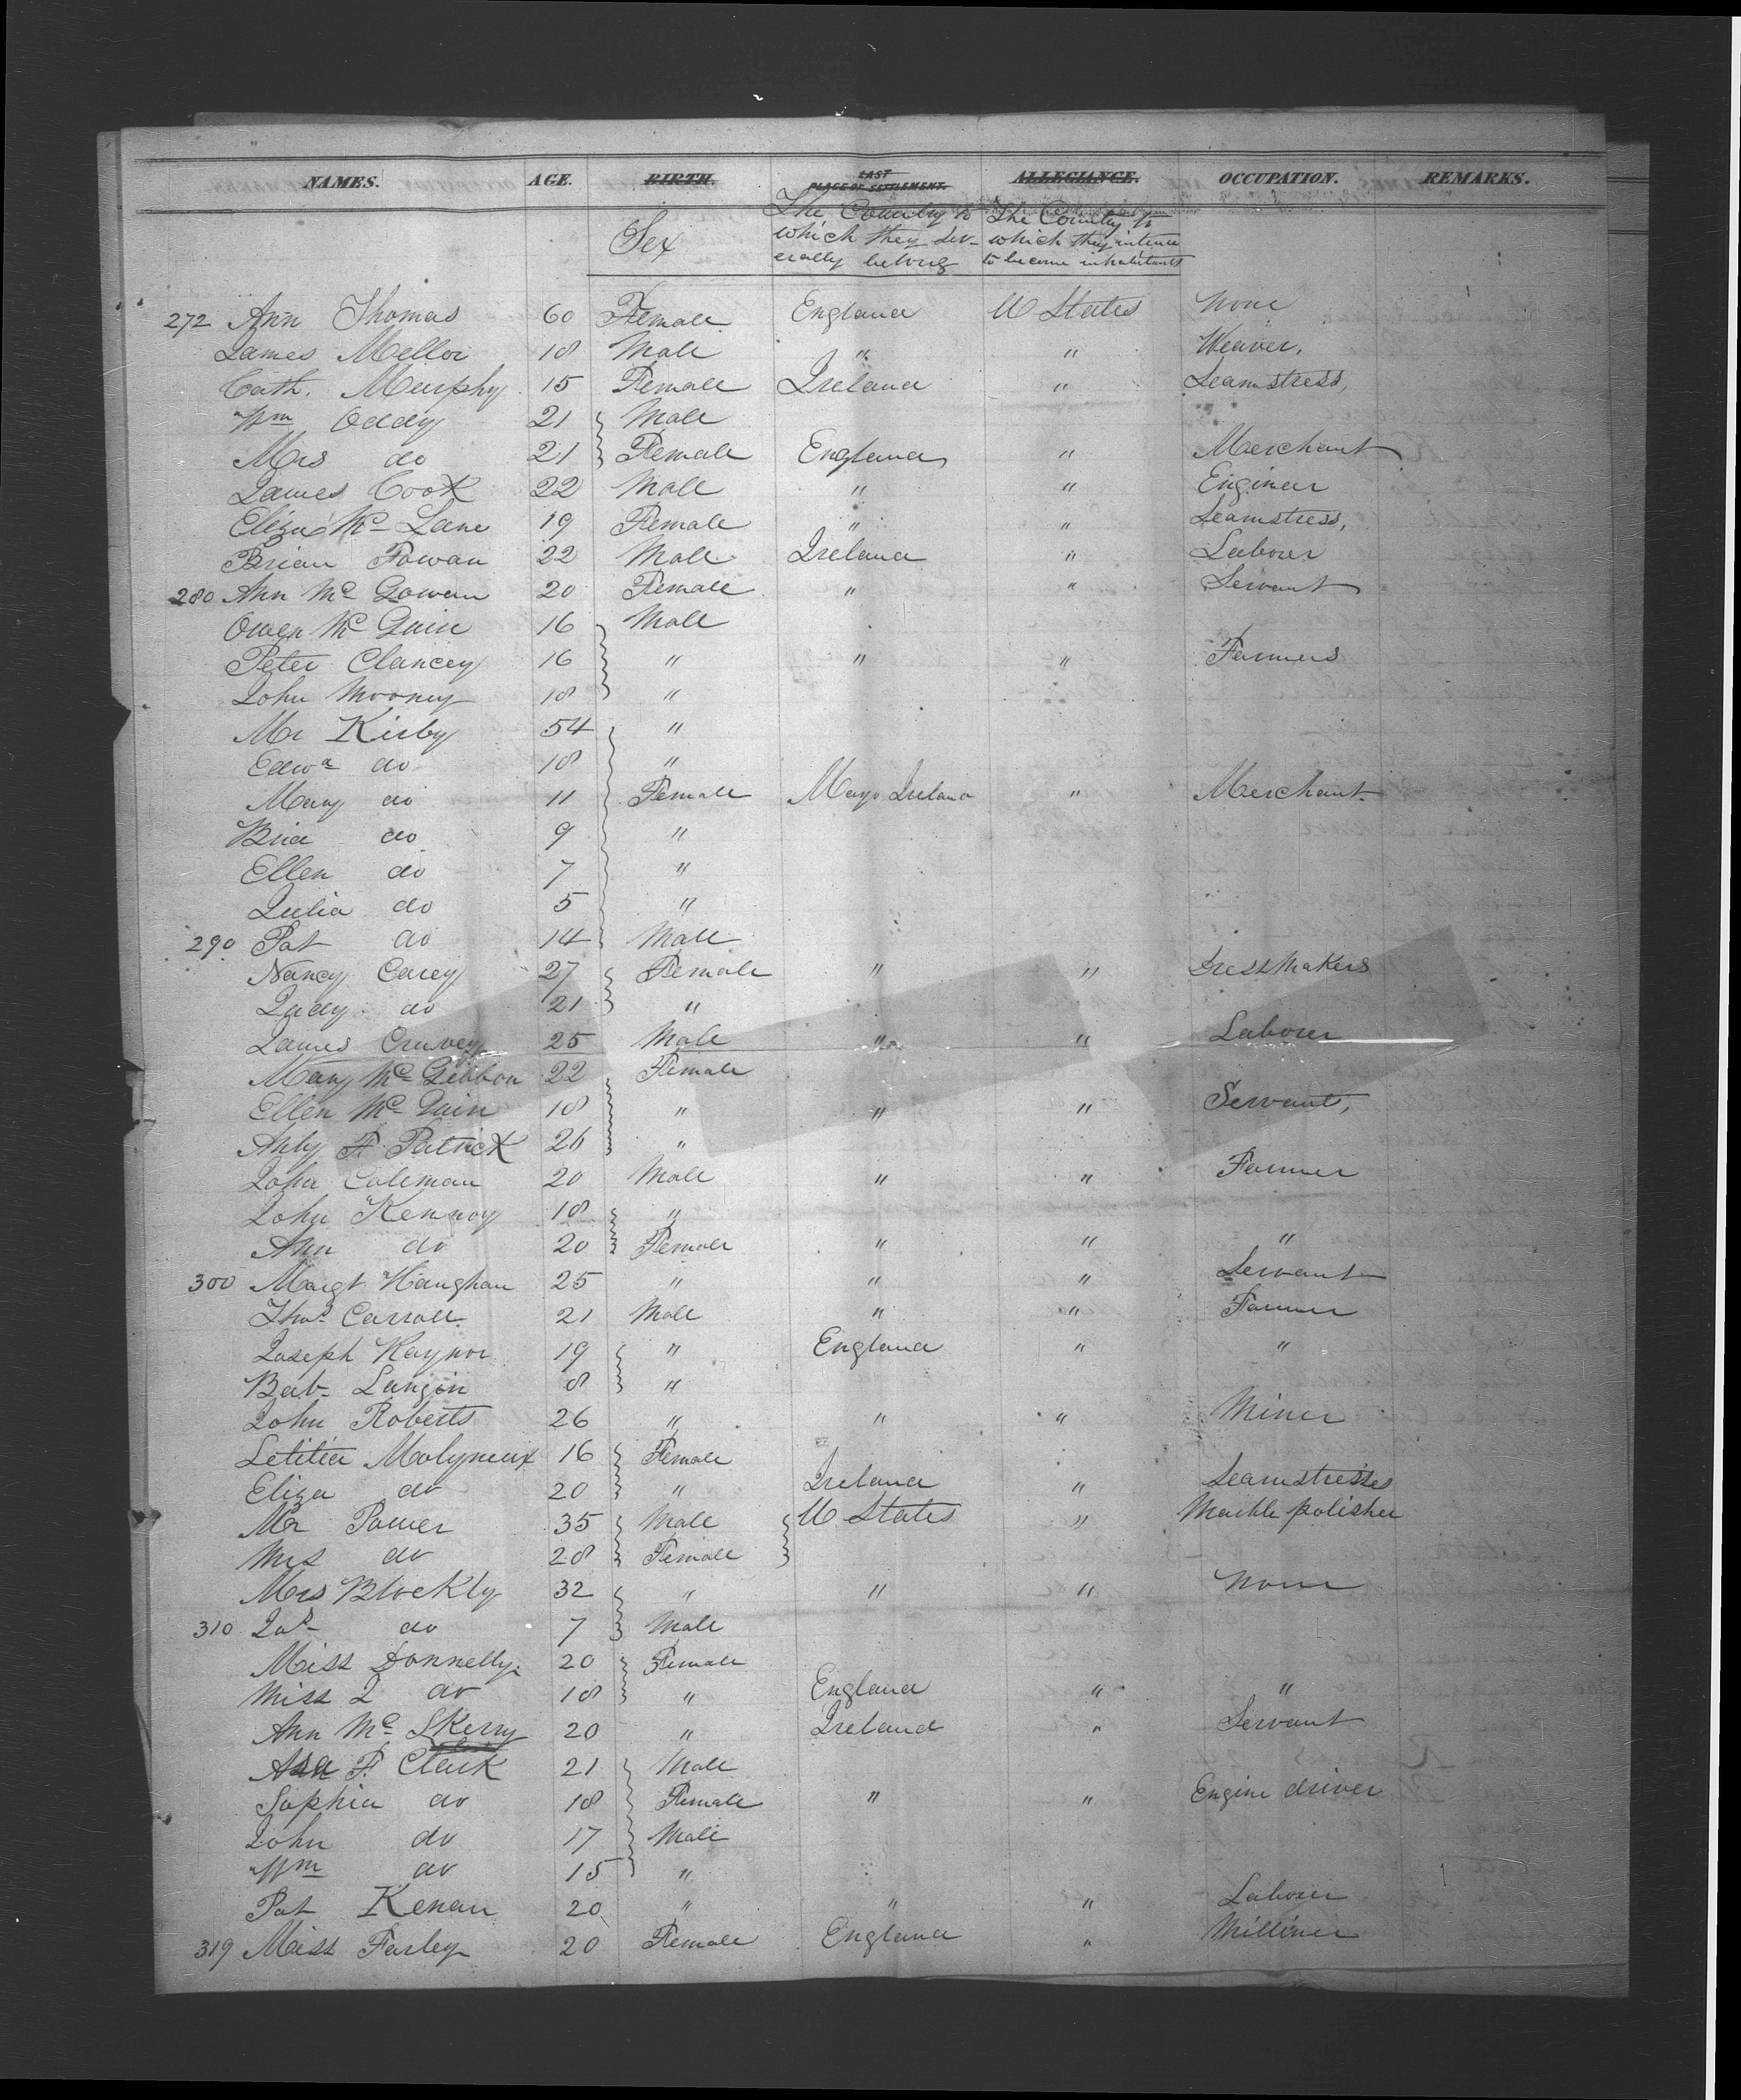 NAMES. AGE. BIRTH. LAST PLACE OF SETTLEMENT. ALLEGIANCE. OCCUPATION. REMARKS.
Sex The Country to which they severally belong The Country to which they intend to become inhabitants
272 Ann Thomas 60 Female England U States None
James Mellor 18 Male " " Weaver,
Cath. Murphy 15 Female Ireland " Seamstress,
Wm Oddy 21 Male
Mrs do 21 Female England " Merchant
James Cook 22 Male " " Engineer
Eliza Mc Lane 19 Female " " Seamstress,
Brian Fowan 22 Male Ireland " Laborer
280 Ann Mc Gowan 20 Female " " Servant
Owen Mc Guin 16 Male
Peter Clancey 16 " " " Farmers
John Mooney 18 "
Mr Kirby 54 "
Edwd do 18 "
Mary do 11 Female Mayo Ireland " Merchant
Brid do 9 "
Ellen do 7 "
Julia do 5 "
290 Pat do 14 Male
Nancy Carey 27 Female " " DressMakers
Judy do 21 "
James 25 Male " " Laborer
Mary Mc Gibbon 22 Female
Ellen Mc Guin 18 " " " Servant,
F. Patrick 26 "
John Coleman 20 Male " " Farmer
John Kennoy 18 "
Ann do 20 Female " " "
300 Margt Haughan 25 " " " Servant
Thos Carroll 21 Male " " Farmer
Joseph Raynor 19 " England " "
Langin 8 "
John Roberts 26 " " " Miner
Letitia Molyneux 16 Female
Eliza do 20 " Ireland " Seamstresses
Mr Power 35 Male U States " Marble polisher
Mrs do 28 Female
Mrs Blockly 32 " " " None
310 Jas do 7 Male
Miss Donnelly 20 Female
Miss J do 18 " England " "
Ann Mc Skerry 20 " Ireland " Servant
F. Clark 21 Male
Sophia do 18 Female " " Engine driver
John do 17 Male
Wm do 15 "
Pat Kenan 20 " " " Laborer
319 Miss Farley 20 Female England " Milliner